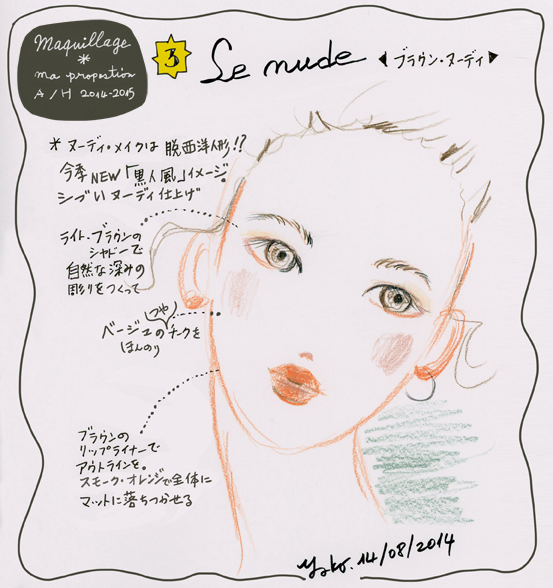 Maquillage
*
ma propostion
A/H 2014-2015
3
Le nude
◀ブラウン・ヌーディ▶
* ヌーディ・メイクは 脱西洋人形!?
今季NEW「黒人風」イメージ。
シブい ヌーディ仕上げ
ライト・ブラウンの
シャドーで
自然な深みの
彫りをつくって
(つや)
ベージュのチークを
ほんのり
ブラウンの
リップライナーで
アウトラインを。
スモーク・オレンジで全体に
マットに落ちつかせる
14/08/2014